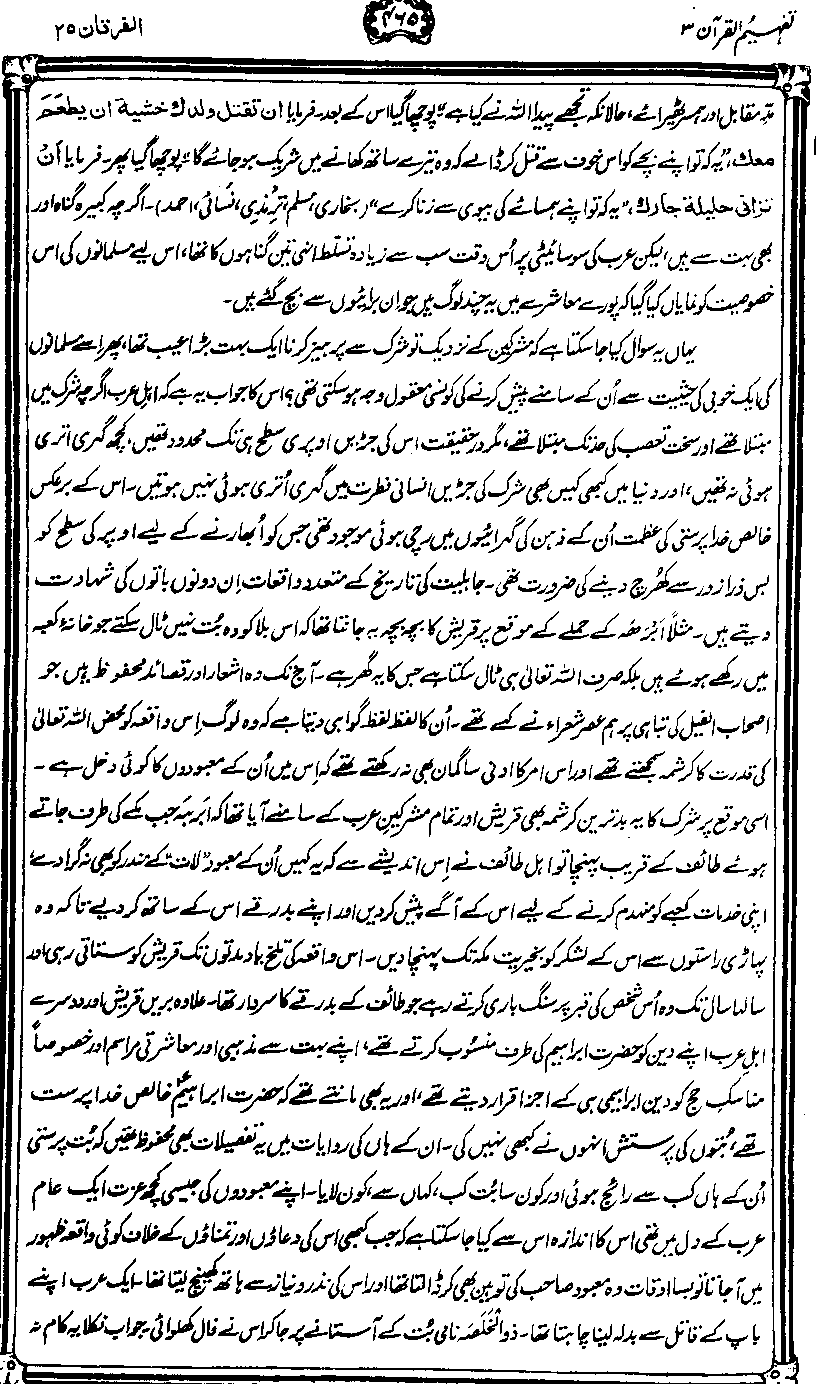 تفہیم القرآن ۳
۴۶۵
الفرقان ۲۵
مدِّ مقابل اور ہمسر ٹھیرائے، حالانکہ تجھے پیدا اللہ نے کیا ہے“ پوچھا گیا اس کے بعد۔ فرمایا ان تقتل ولدك خشية ان يطعم
معك، ”یہ کہ تو اپنے بچے کو اس خوف سے قتل کر ڈالے کہ وہ تیرے ساتھ کھانے میں شریک ہو جائے گا“ پوچھا گیا پھر۔ فرمایا أن
تزانى حليلة جارك، ”یہ کہ تو اپنے ہمسائے کی بیوی سے زنا کرے“ (بخاری، مسلم، ترمذی، نسائی، احمد)۔ اگرچہ کبیرہ گناہ اور
بھی بہت سے ہیں، لیکن عرب کی سوسائیٹی پر اُس وقت سب سے زیادہ تسلط انہی تین گناہوں کا تھا، اس لیے مسلمانوں کی اس
خصوصیت کو نمایاں کیا گیا کہ پورے معاشرے میں یہ چند لوگ ہیں جو ان برائیوں سے بچ گئے ہیں۔
یہاں یہ سوال کیا جا سکتا ہے کہ مشرکین کے نزدیک تو شرک سے پرہیز کرنا ایک بہت بڑا عیب تھا، پھر اسے مسلمانوں
کی ایک خوبی کی حیثیت سے اُن کے سامنے پیش کرنے کی کونسی معقول وجہ ہو سکتی تھی؟ اس کا جواب یہ ہے کہ اہلِ عرب اگرچہ شرک میں
مبتلا تھے اور سخت تعصب کی حد تک مبتلا تھے، مگر درحقیقت اس کی جڑیں اوپری سطح ہی تک محدود تھیں، کچھ گہری اتری
ہوئی نہ تھیں، اور دنیا میں کبھی کہیں بھی شرک کی جڑیں انسانی فطرت میں گہری اُتری ہوئی نہیں ہوتیں۔ اس کے برعکس
خالص خدا پرستی کی عظمت اُن کے ذہن کی گہرائیوں میں رچی ہوئی موجود تھی جس کو اُبھارنے کے لیے اوپر کی سطح کو
بس ذرا زور سے کھُرچ دینے کی ضرورت تھی۔ جاہلیت کی تاریخ کے متعدد واقعات اِن دونوں باتوں کی شہادت
دیتے ہیں۔ مثلاً اَبْرَھہ کے حملے کے موقع پر قریش کا بچہ بچہ یہ جانتا تھا کہ اس بلا کو وہ بُت نہیں ٹال سکتے جو خانۂ کعبہ
میں رکھے ہوئے ہیں بلکہ صرف اللہ تعالیٰ ہی ٹال سکتا ہے جس کا یہ گھر ہے۔ آج تک وہ اشعار اور قصائد محفوظ ہیں جو
اصحاب الفیل کی تباہی پر ہم عصر شعراء نے کہے تھے۔ اُن کا لفظ لفظ گواہی دیتا ہے کہ وہ لوگ اِس واقعہ کو محض اللہ تعالیٰ
کی قدرت کا کرشمہ سمجھتے تھے اور اس امر کا ادنیٰ سا گمان بھی نہ رکھتے تھے کہ اِس میں اُن کے معبودوں کا کوئی دخل ہے۔
اسی موقع پر شرک کا یہ بدترین کرشمہ بھی قریش اور تمام مشرکینِ عرب کے سامنے آیا تھا کہ اَبرہہ جب مکے کی طرف جاتے
ہوئے طائف کے قریب پہنچا تو اہلِ طائف نے اِس اندیشے سے کہ یہ کہیں اُن کے معبود ”لات“ کے مندر کو بھی نہ گرا دے،
اپنی خدمات کعبے کو منہدم کرنے کے لیے اس کے آگے پیش کر دیں اور اپنے بدرقے اس کے ساتھ کر دیے تاکہ وہ
پہاڑی راستوں سے اس کے لشکر کو بخیریت مکہ تک پہنچا دیں۔ اس واقعہ کی تلخ یاد مدتوں تک قریش کو ستاتی رہی اور
سالہا سال تک وہ اُس شخص کی قبر پر سنگ باری کرتے رہے جو طائف کے بدرقے کا سردار تھا۔ علاوہ بریں قریش اور دوسرے
اہلِ عرب اپنے دین کو حضرت ابراہیم کی طرف منسوب کرتے تھے، اپنے بہت سے مذہبی اور معاشرتی مراسم اور خصوصاً
مناسکِ حج کو دینِ ابراہیمی ہی کے اجزا قرار دیتے تھے، اور یہ بھی مانتے تھے کہ حضرت ابراہیمؑ خالص خدا پرست
تھے، بُتوں کی پرستش انہوں نے کبھی نہیں کی۔ ان کے ہاں کی روایات میں یہ تفصیلات بھی محفوظ تھیں کہ بُت پرستی
اُن کے ہاں کب سے رائج ہوئی اور کون سا بُت کب، کہاں سے، کون لایا۔ اپنے معبودوں کی جیسی کچھ عزت ایک عام
عرب کے دل میں تھی اس کا اندازہ اس سے کیا جا سکتا ہے کہ جب کبھی اس کی دعاؤں اور تمناؤں کے خلاف کوئی واقعہ ظہور
میں آ جاتا تو بسا اوقات وہ معبود صاحب کی توہین بھی کر ڈالتا تھا اور اس کی نذر و نیاز سے ہاتھ کھینچ لیتا تھا۔ ایک عرب اپنے
باپ کے قاتل سے بدلہ لینا چاہتا تھا۔ ذوالخَلَصہ نامی بُت کے آستانے پر جا کر اس نے فال کھلوائی، جواب نکلا یہ کام نہ